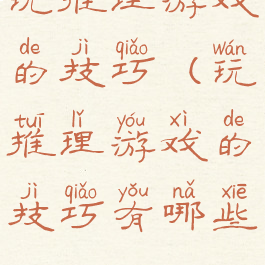 玩推理游戏
de jì qiǎo wán
的技巧（玩
tuī lǐ yóu xì de
推理游戏的
jì qiǎo yǒu nǎ xiē
技巧有哪些